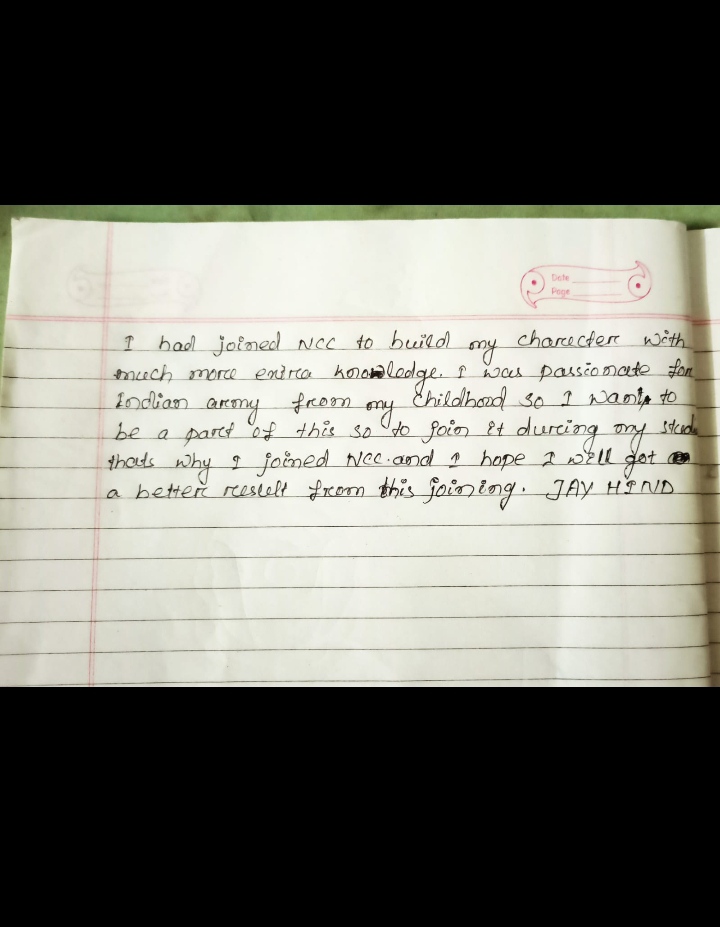 Date
Page
I had joined NCC to build my charecter with
much more extra knowledge. I was passionate for
Indian army from my childhood so I want to
be a part of this so to join it during my stud
thats why I joined NCC. and I hope I will got
a better result from this joining. JAY HIND